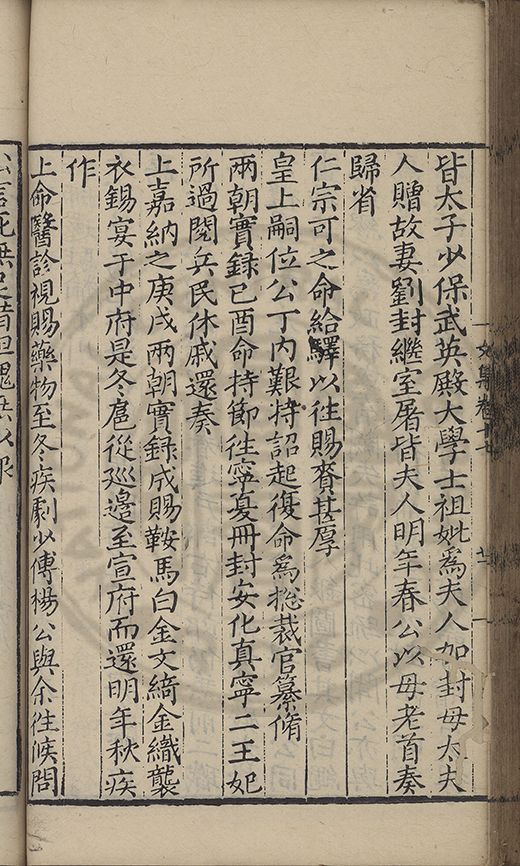 文集卷十七
皆太子少保武英殿大學士祖妣爲夫人加封母太夫
人贈故妻劉封繼室屠皆夫人明年春公以母老首奏
歸省
仁宗可之命給驛以往賜賚甚厚
皇上嗣位公丁內艱特詔起復命爲緫裁官纂脩
兩朝實録己酉命持節往寧夏冊封安化真寧二王妃
所過閱兵民休戚還奏
上嘉納之庚戌兩朝實録成賜鞍馬白金文綺金織襲
衣錫宴于中府是冬扈從廵邊至宣府而還明年秋疾
作
上命醫診視賜藥物至冬疾劇少傅楊公與余往候問